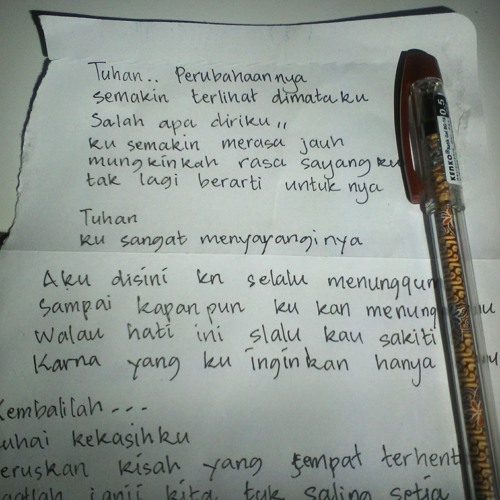 Tuhan.. Perubahaannya
semakin terlihat dimataku
Salah apa diriku,,
ku semakin merasa jauh
mungkinkah rasa sayangku
tak lagi berarti untuk nya
Tuhan
ku sangat menyayanginya
Aku disini kn selalu
sampai kapanpun ku kan
walau hati ini slalu kau sakiti
Karna yang ku inginkan hanya
Kembalilah - - -
kekasihku
kisah yang sempat
janji kita tuk saling setia
KENKO
0.5